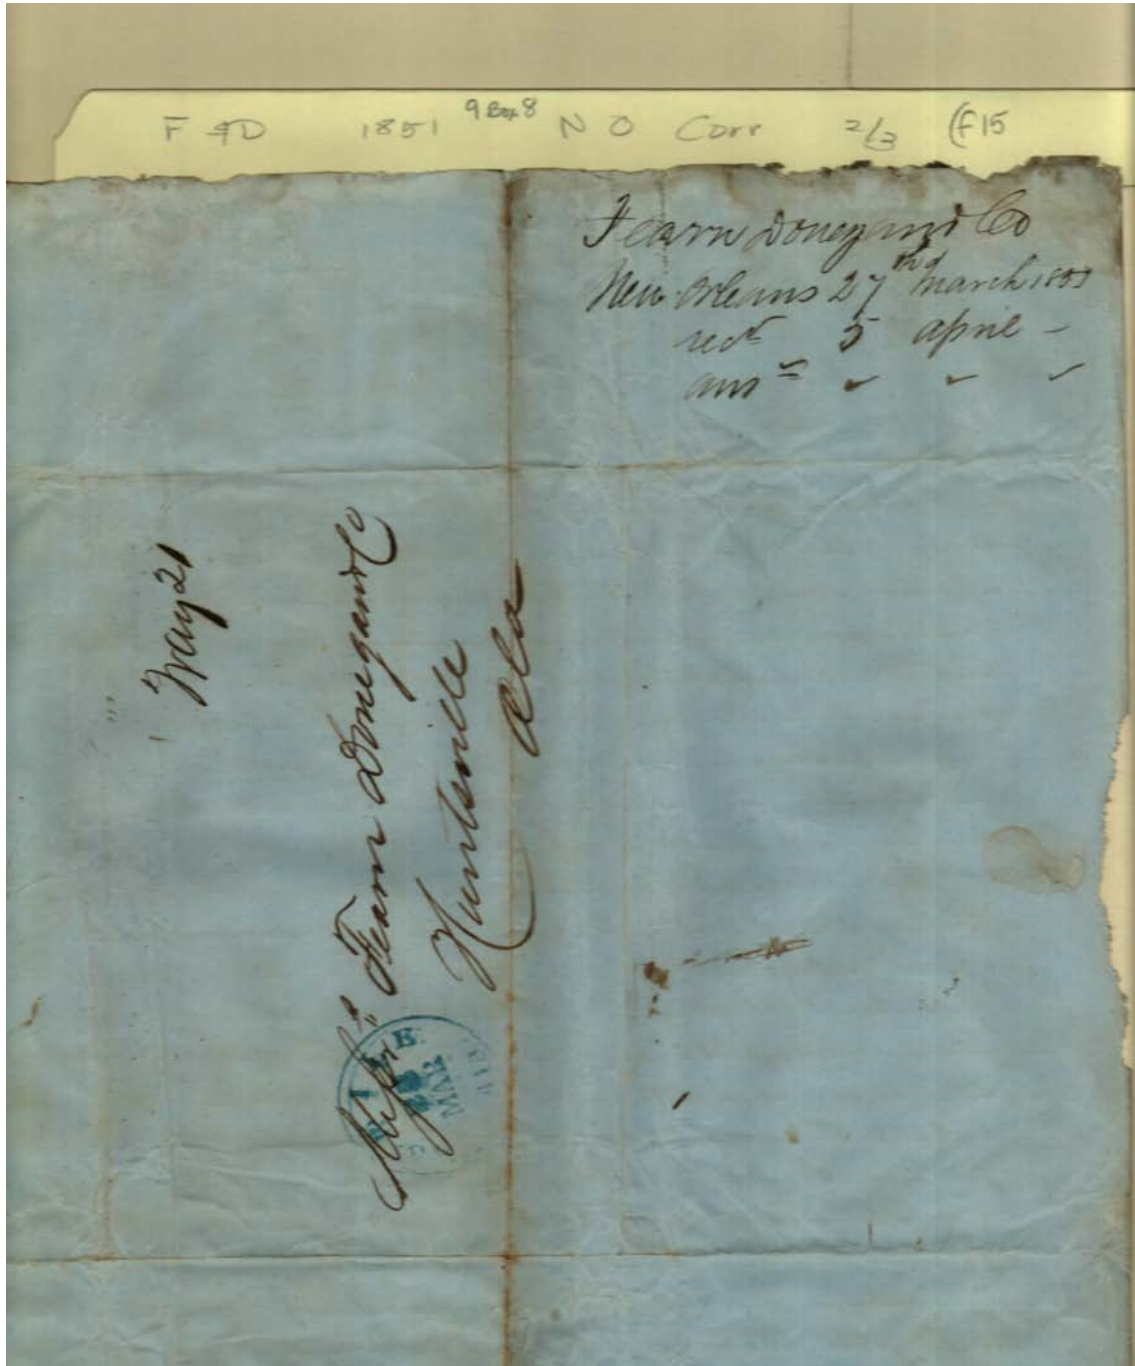 F & D 1851 9 Box 8 N O Corr 2/3 (F15
Fearn Donegan & Co
New Orleans 27th March
recd 5 april -
ansd " " "
Way 21
Messrs Fearn Donegan & Co
Huntsville
Ala
MAR